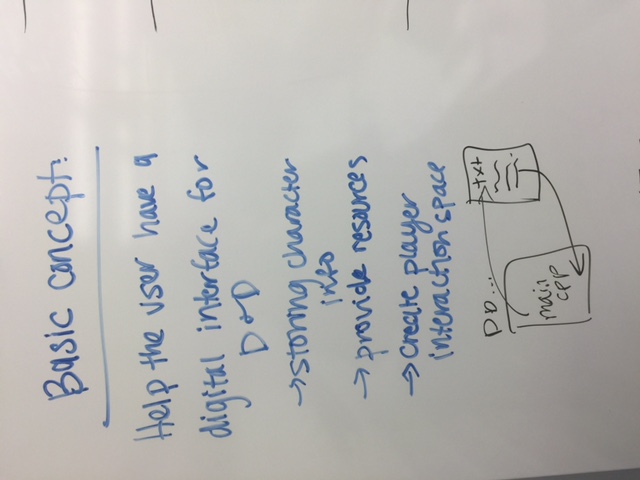 Basic concept:
Help the user have a
digital interface for
D&D
→storing character
info
→provide resources
→Create player
interaction space
DD...
txt
main
cpp